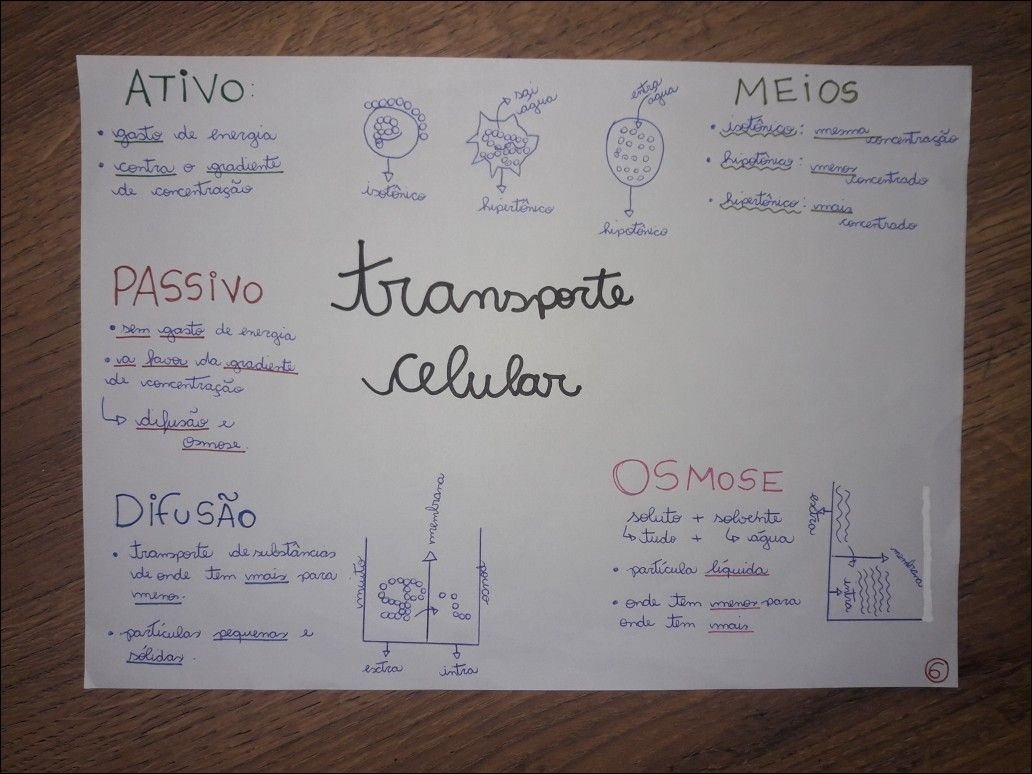 ATIVO:
• gasto de energia
• contra o gradiente
de concentração
isotônico
sai
água
hipertônico
entra
água
hipotônico
MEIOS
• isotônico: mesma concentração
• hipotônico: menos
concentrado
• hipertônico: mais
concentrado
transporte
celular
PASSIVO
• sem gasto de energia
• va favor da gradiente
de concentração
↳ difusão e
osmose.
DIFUSÃO
• transporte de substâncias
de onde tem mais para
menos.
• partículas pequenas e
sólidas.
muito
membrana
pouco
extra
intra
OSMOSE
soluto + solvente
↳ tudo + ↳ água
• partícula líquida
• onde tem menos para
onde tem mais
extra
membrana
intra
6